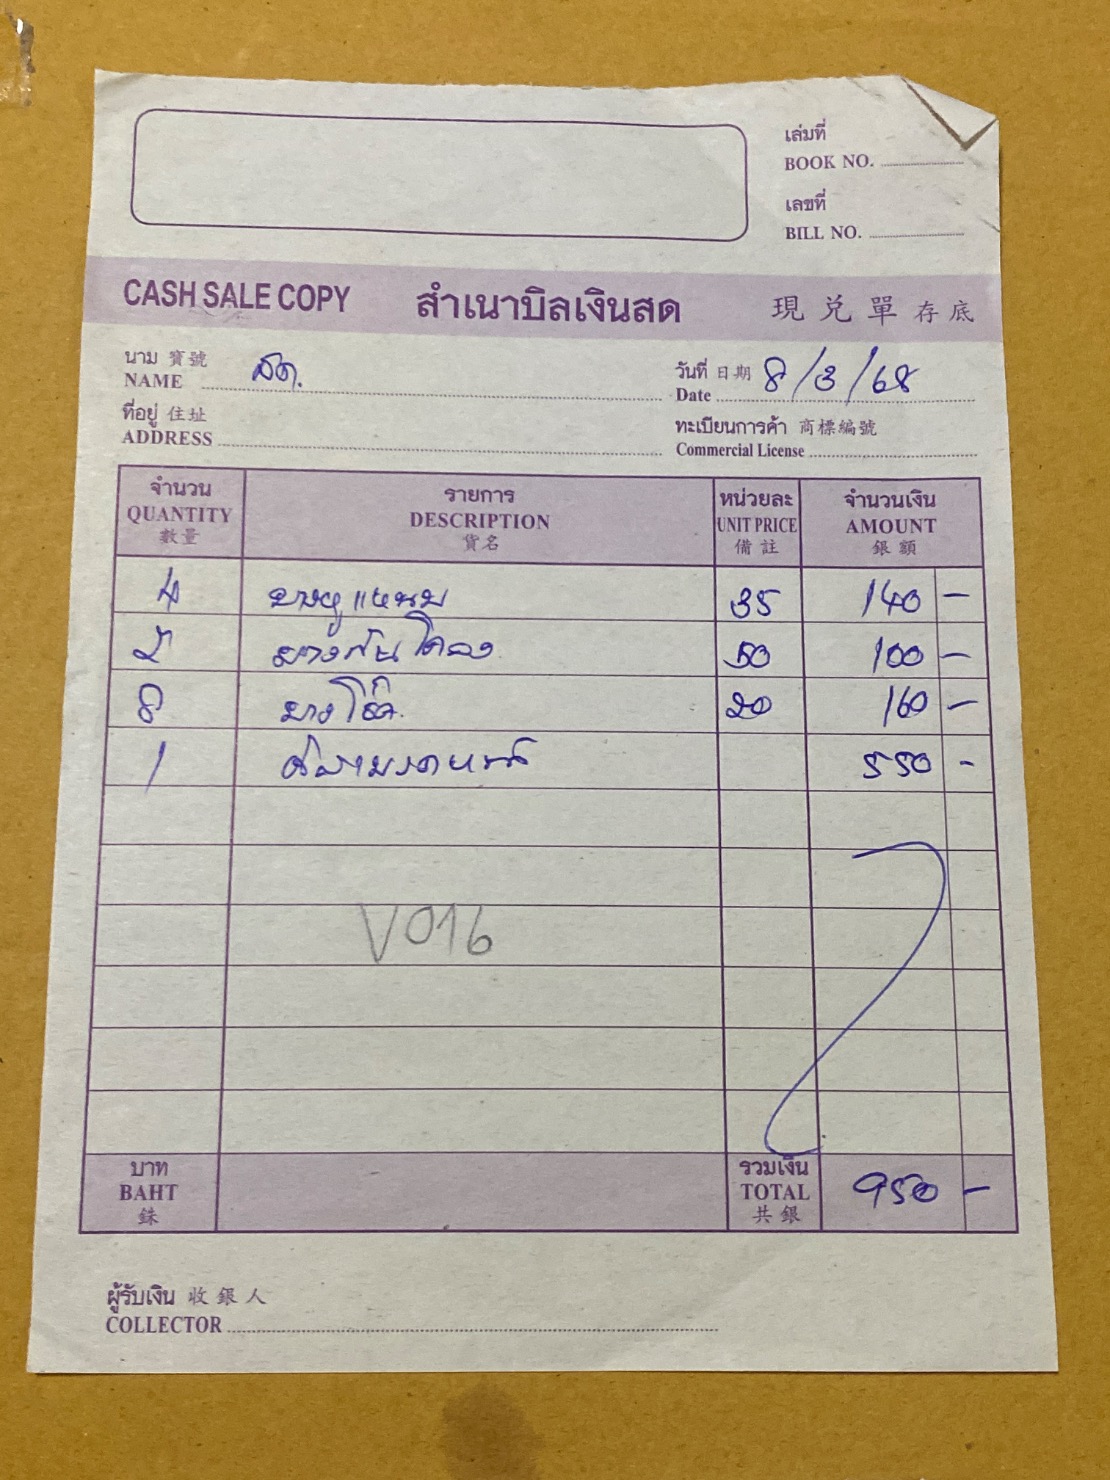 เล่มที่
BOOK NO.
เลขที่
BILL NO.
CASH SALE COPY สำเนาบิลเงินสด 現兌單存底
นาม 寶號
NAME สด. วันที่ 日期 8/3/68
Date
ที่อยู่ 住址
ADDRESS
ทะเบียนการค้า 商標編號
Commercial License
จำนวน รายการ หน่วยละ จำนวนเงิน
QUANTITY DESCRIPTION UNIT PRICE AMOUNT
數量 貨名 備註 銀額
4 ยางหูแหนบ 35 140 -
2 ยางกันโคลง 50 100 -
8 ยางโช๊ค 20 160 -
1 550 -
V016
บาท รวมเงิน
BAHT TOTAL 950 -
銖 共銀
ผู้รับเงิน 收銀人
COLLECTOR